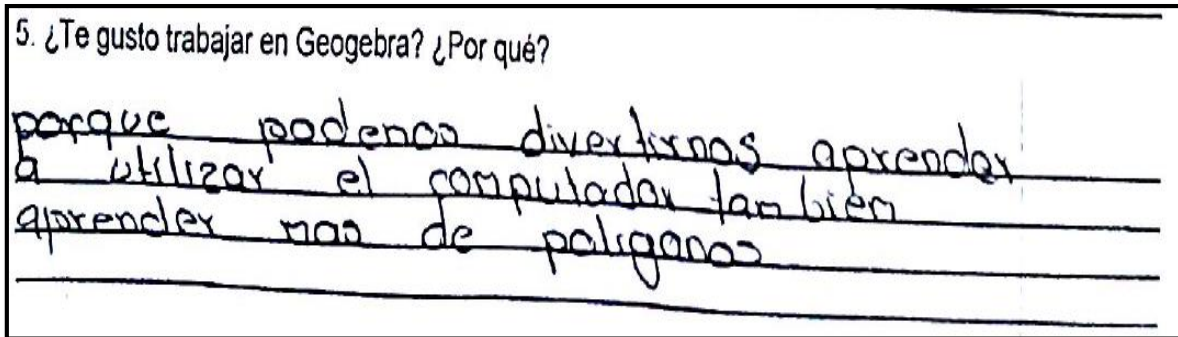 5. ¿Te gusto trabajar en Geogebra? ¿Por qué?
porque podemos divertirnos aprender
a utilizar el computador también
aprender mas de poligonos